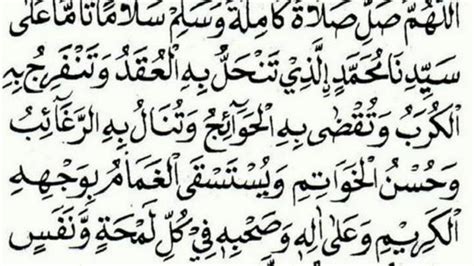 اَللّٰهُمَّ صَلِّ صَلَاةً كَامِلَةً وَسَلِّمْ سَلَامًا تَامًّا عَلٰى
سَيِّدِنَا مُحَمَّدٍ الَّذِيْ تَنْحَلُّ بِهِ الْعُقَدُ وَتَنْفَرِجُ بِهِ
الْكُرَبُ وَتُقْضٰى بِهِ الْحَوَآئِجُ وَتُنَالُ بِهِ الرَّغَآئِبُ
وَحُسْنُ الْخَوَاتِمِ وَيُسْتَسْقَى الْغَمَامُ بِوَجْهِهِ
الْكَرِيْمِ وَعَلٰى اٰلِهِ وَصَحْبِهِ فِيْ كُلِّ لَمْحَةٍ وَّنَفَسٍ